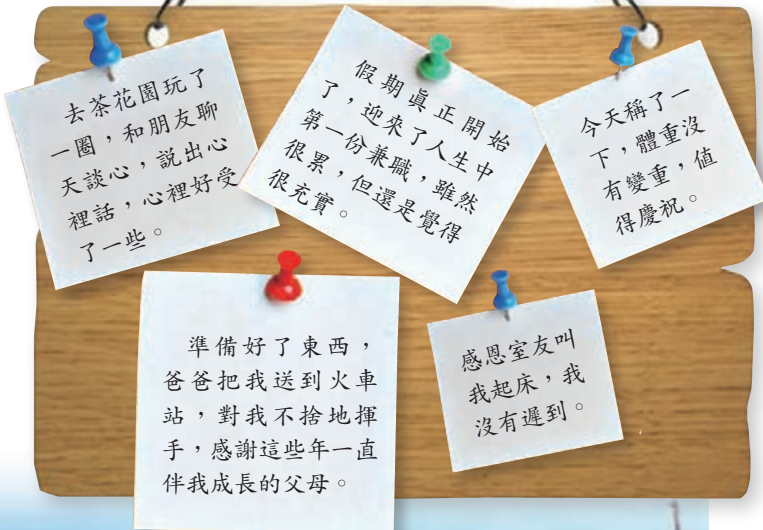 去茶花園玩了
一圈，和朋友聊
天談心，説出心
裡話，心裡好受
了一些。
假期真正開始
了，迎來了人生中
第一份兼職，雖然
很累，但還是覺得
很充實。
今天稱了一
下，體重沒
有變重，值
得慶祝。
準備好了東西，
爸爸把我送到火車
站，對我不捨地揮
手，感謝這些年一直
伴我成長的父母。
感恩室友叫
我起床，我
沒有遲到。